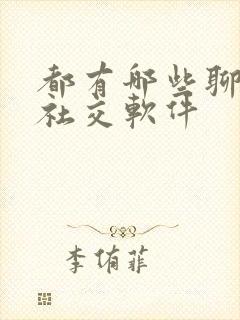 都有哪些聊
社交軟件
李侑菲